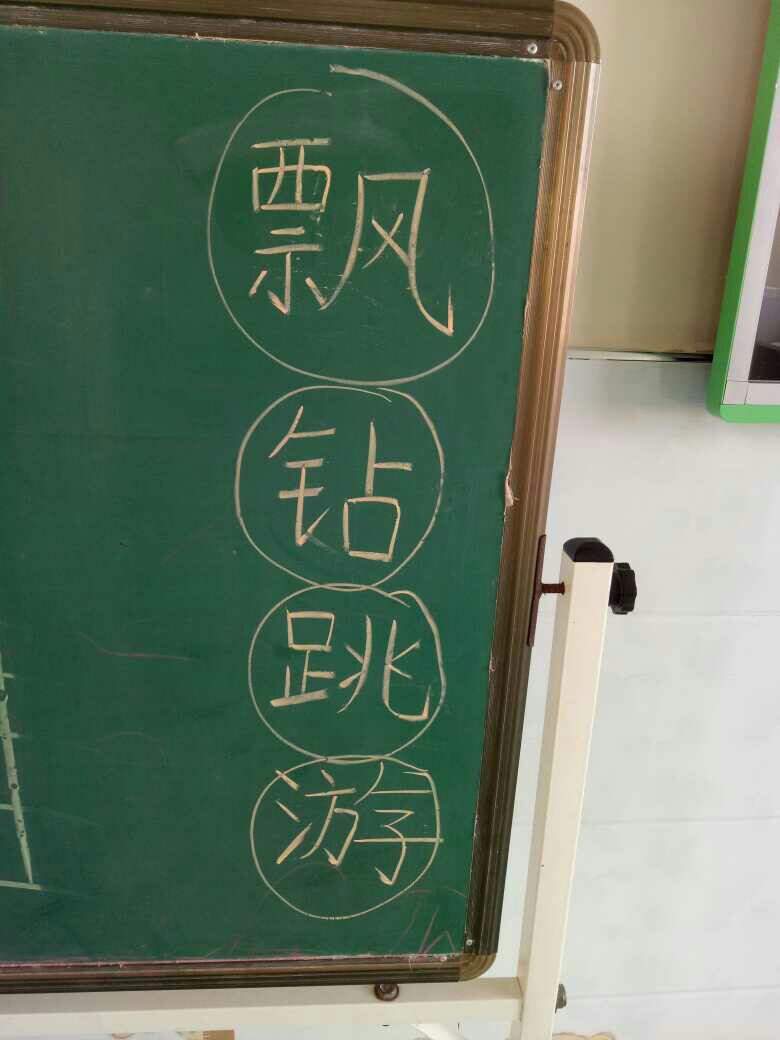 飘
钻
跳
游